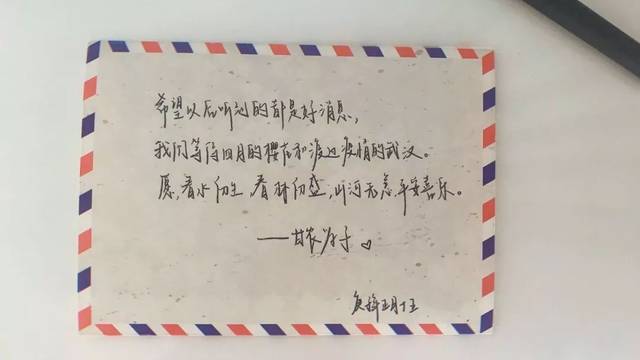 希望以后听到的都是好消息,
我们等待四月的樱花和渡过疫情的武汉。
愿,春水初生,春林初盛,山河无恙,平安喜乐。
——甘农学子
庚子年正月十五